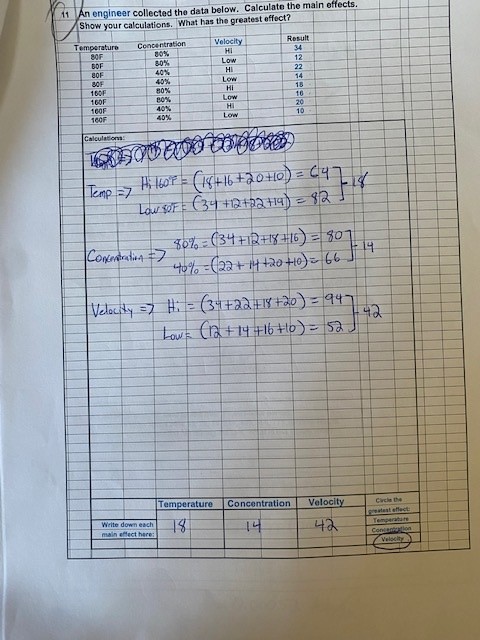 11 An engineer collected the data below. Calculate the main effects.
Show your calculations. What has the greatest effect?
Temperature Concentration Velocity Result
80F 80% Hi 34
80F 80% Low 12
80F 40% Hi 22
80F 40% Low 14
160F 80% Hi 18
160F 80% Low 16
160F 40% Hi 20
160F 40% Low 10
Calculations:
Temp => Hi 160°F = (18+16+20+10) = 64
Low 80F = (34+12+22+14) = 82 18
Concentration => 80% = (34+12+18+16) = 80
40% = (22+14+20+10) = 66 14
Velocity => Hi = (34+22+18+20) = 94
Low = (12+14+16+10) = 52 42
Temperature Concentration Velocity Circle the
greatest effect:
Write down each
main effect here: 18 14 42 Temperature
Concentration
Velocity